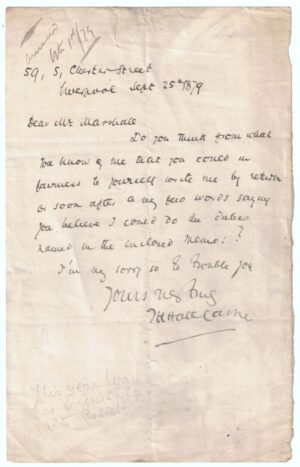 answered
Oct 1st/79
59, S, Chester Street
Liverpool Sept 25th 1879
Dear Mr Marshall
Do you think from what
you know of me that you could in
fairness to yourself write me by return
or soon after a very few words saying
you believe I could do the duties
named in the enclosed memo:?
I'm very sorry so to trouble you
Yours very truly
T H Hall Caine
This year began
his friendship
with Rossetti